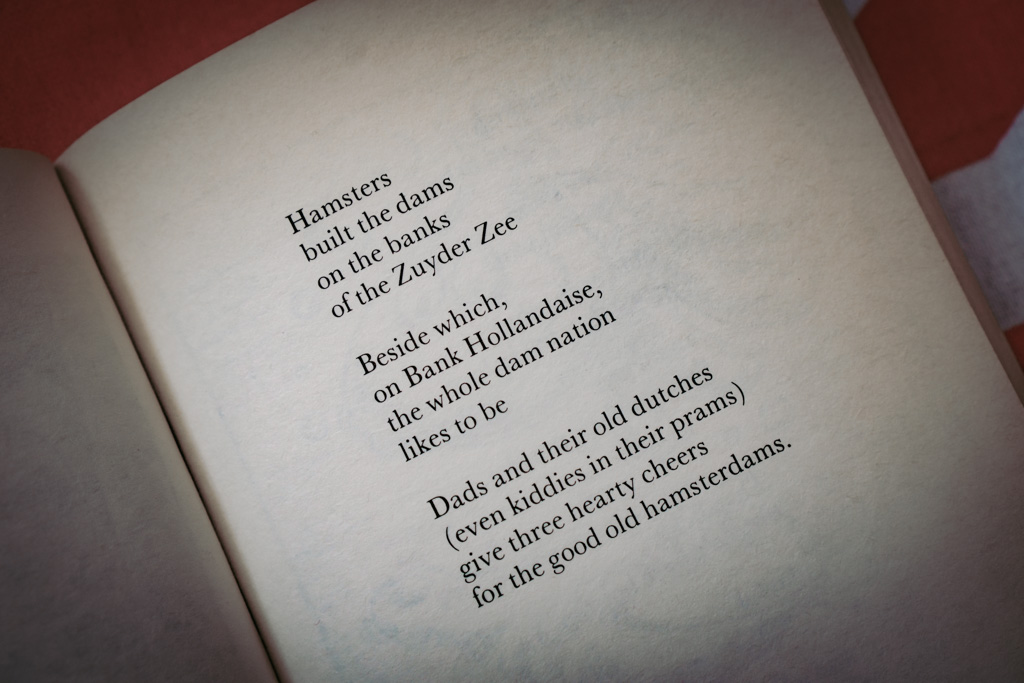 Hamsters
built the dams
on the banks
of the Zuyder Zee
Beside which,
on Bank Hollandaise,
the whole dam nation
likes to be
Dads and their old dutches
(even kiddies in their prams)
give three hearty cheers
for the good old hamsterdams.